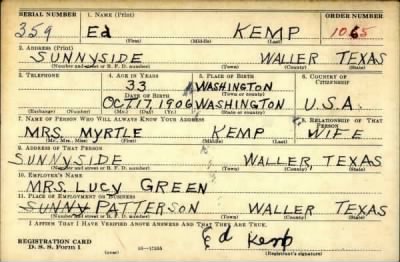 SERIAL NUMBER 1. NAME (Print) ORDER NUMBER
359 Ed KEMP 1065
(First) (Middle) (Last)
2. ADDRESS (Print)
SUNNYSIDE WALLER TEXAS
(Number and street or R. F. D. number) (Town) (County) (State)
3. TELEPHONE 4. AGE IN YEARS 5. PLACE OF BIRTH 6. COUNTRY OF CITIZENSHIP
33 WASHINGTON
DATE OF BIRTH (Town or county)
OCT 17 1906 WASHINGTON U.S.A.
(Exchange) (Number) (Mo.) (Day) (Yr.) (State or country)
7. NAME OF PERSON WHO WILL ALWAYS KNOW YOUR ADDRESS 8. RELATIONSHIP OF THAT PERSON
MRS. MYRTLE KEMP WIFE
(Mr., Mrs., Miss) (First) (Middle) (Last)
9. ADDRESS OF THAT PERSON
SUNNYSIDE WALLER, TEXAS
(Number and street or R. F. D. number) (Town) (County) (State)
10. EMPLOYER'S NAME
MRS. LUCY GREEN
11. PLACE OF EMPLOYMENT OR BUSINESS
SUNNY PATTERSON WALLER TEXAS
(Number and street or R. F. D. number) (Town) (County) (State)
I AFFIRM THAT I HAVE VERIFIED ABOVE ANSWERS AND THAT THEY ARE TRUE.
REGISTRATION CARD
D. S. S. Form 1 Ed Kemp
(Registrant's signature)